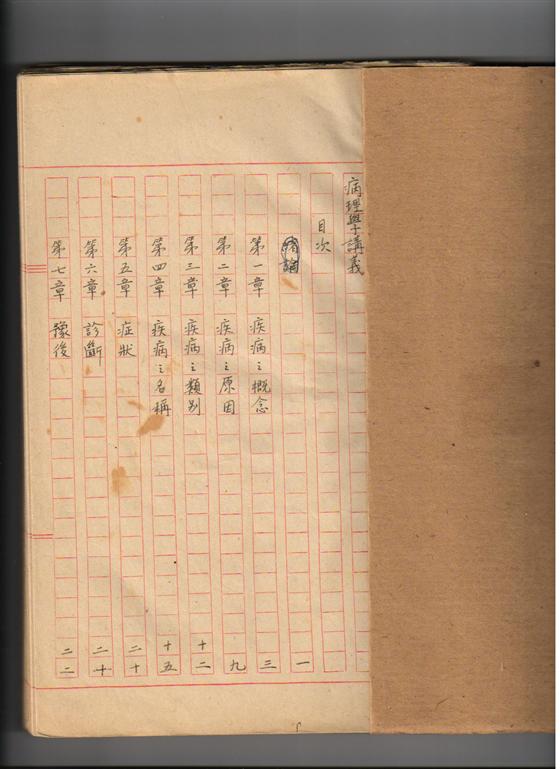 病理學講義
目次
緒論 一
第一章 疾病之概念 三
第二章 疾病之原因 九
第三章 疾病之類別 十二
第四章 疾病之名稱 十五
第五章 症狀 二十
第六章 診斷 二十
第七章 豫後 二二